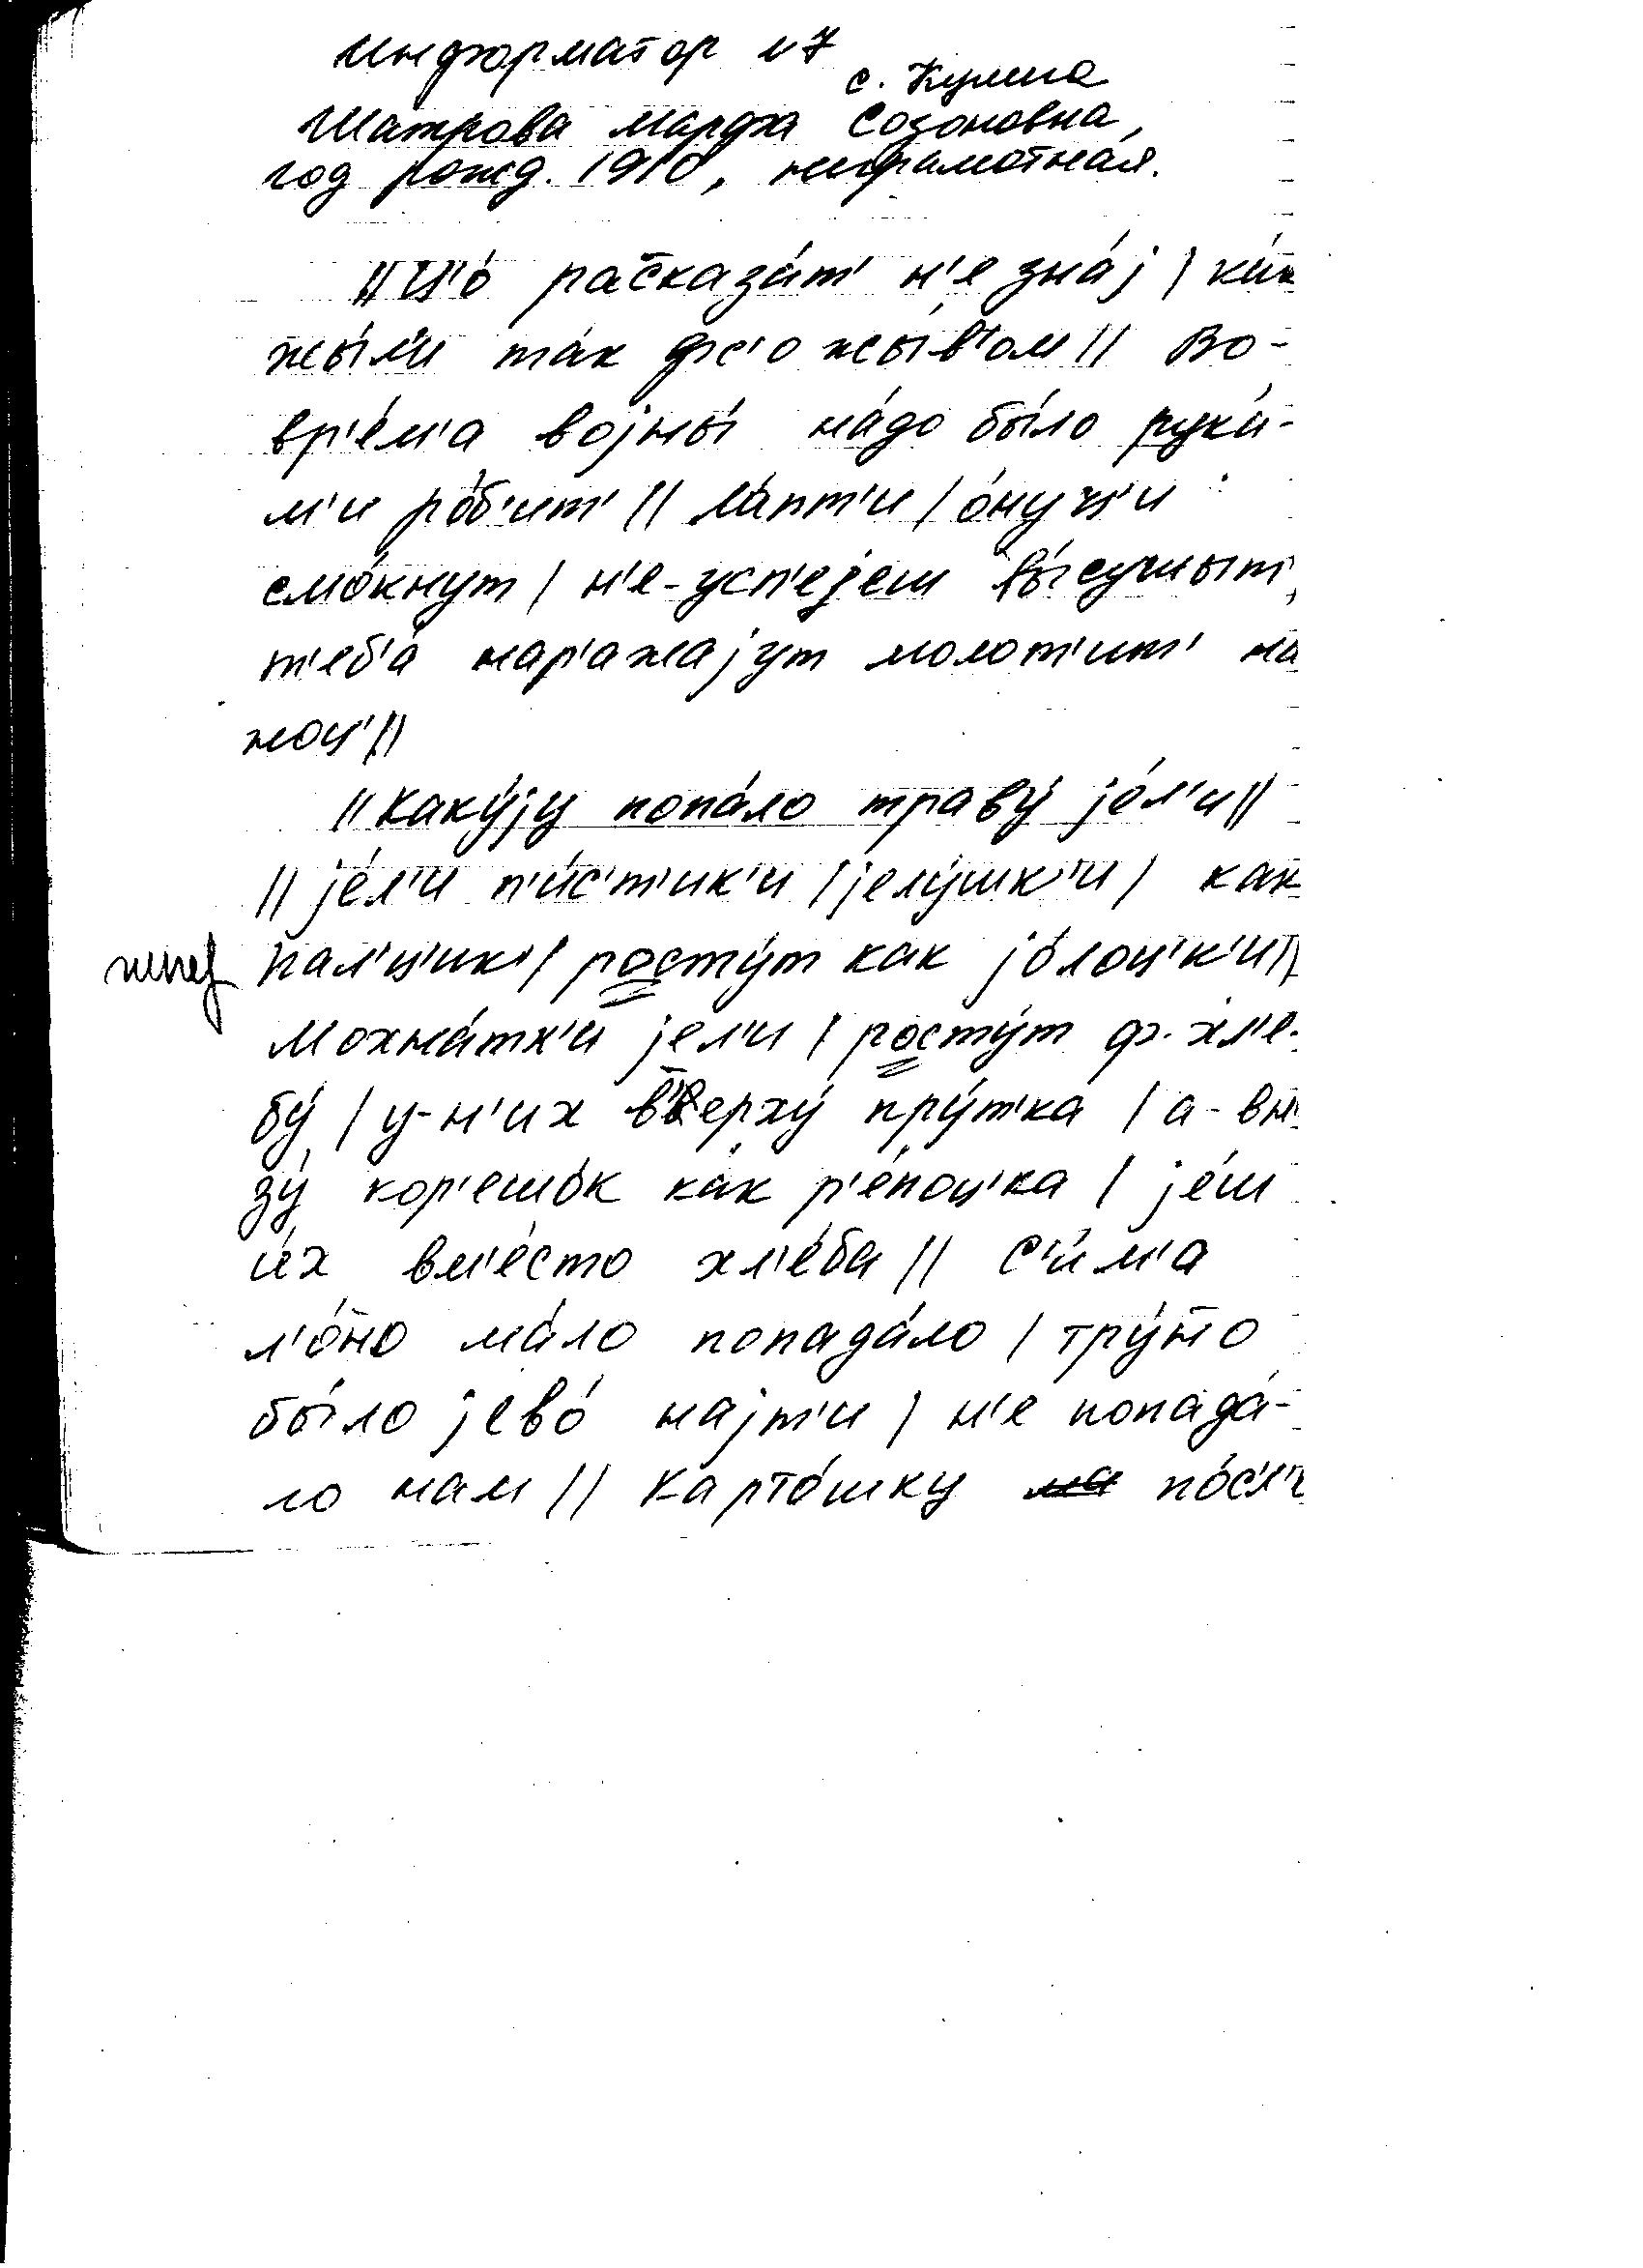 Информатор №7
с. Кулига
Шатрова Марфа Созоновна,
год рожд. 1910, неграмотная.
|| Ц'о́ расказа́т' н'е зна́j | ка́к
жы́л'и та́к фс'о жыв'о́м || Во-
вр'е́м'а воjны́ на́до бы́ло рука́-
м'и ро́б'ит' || ла́пт'и | о́нуч'и
смо́кнут | н'е-усп'еjеш вы́сушыт'
т'еб'а́ нар'ажаjут молот'ит' на
ноц' ||
|| Каку́jу попа́ло траву́ jе́л'и ||
|| jе́л'и п'и́с'т'ик'и | jелу́шк'и | как
пал'ц'ик'и |росту́т как jо́лоц'к'и ||
Мохна́тк'и jел'и | росту́т ф-хл'е-
бу́ | у-н'их в'верху́ пру́тка | а-вн'и
зу́ кор'ешо́к ка́к р'е́поц'ка | jе́ш
и́х вм'е́сто хл'е́ба || С'и́м'а
л'о́но ма́ло попада́ло | тру́но
бы́ло jево́ наjт'и | н'е попада́-
ло нам || Карто́шку по́сл'и